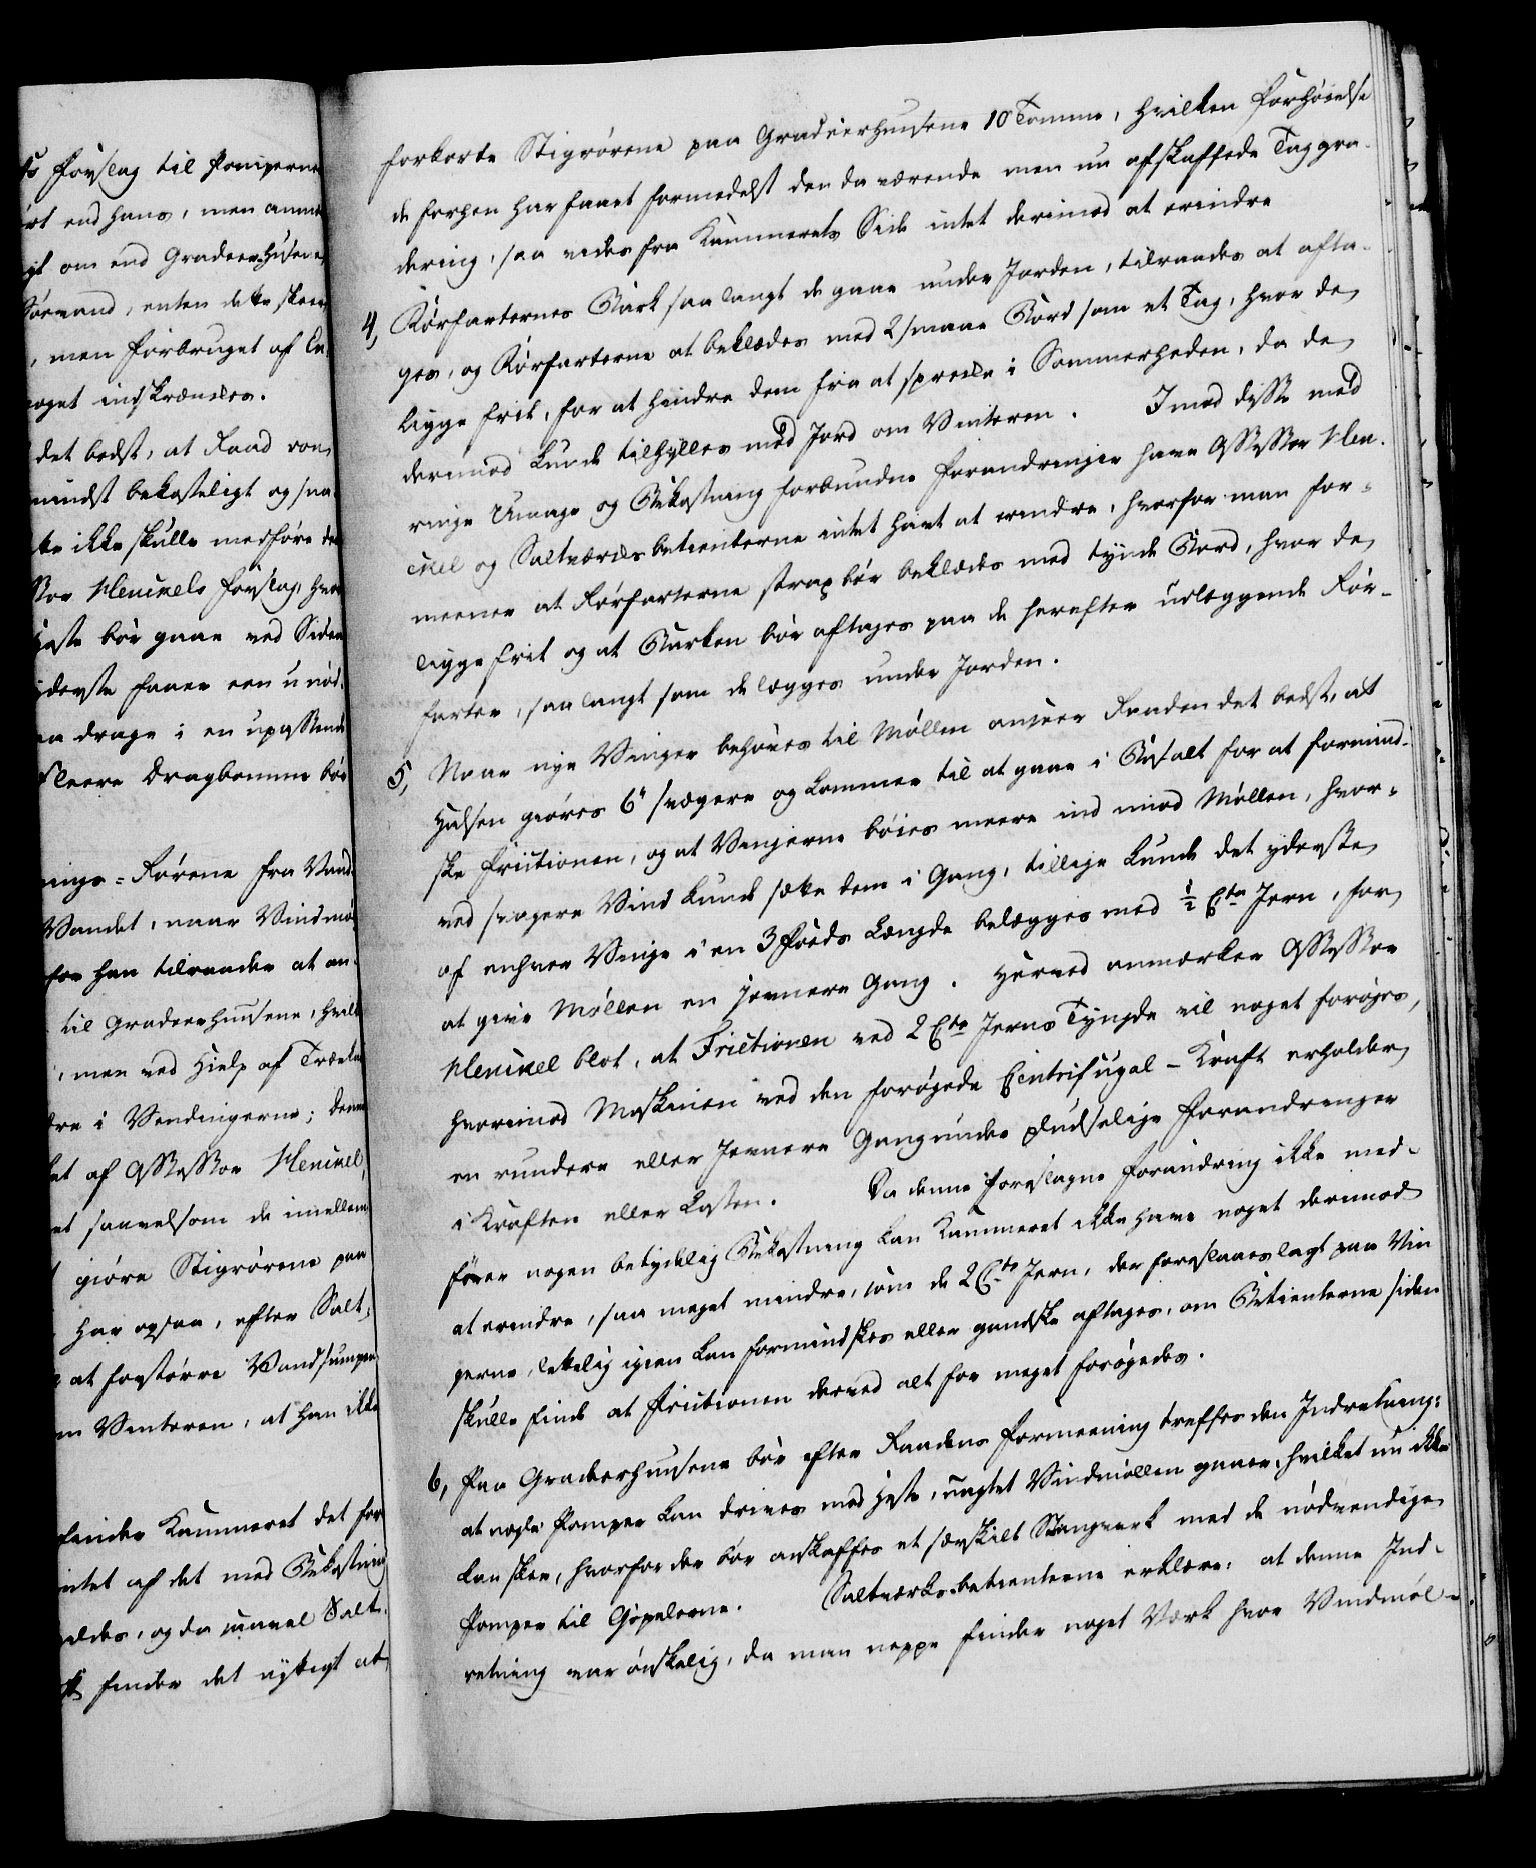 s Forslag til Pomperne
rt end hans, men anmær
gt om end Gradeerhusene
Søevand, enten dette skeer
, men Forbruget af En
noget indskrænkes.
det bedst, at Raad von
mindst bekosteligt og saa
ke ikke skulle medføre de
ssor Henckels Forslag, hvor
este bør gaae ved Siden
yderste faaer een unød-
aa drage i en upassende
fleere Dragbomme bør
nings-Rørene fra Vand
Vandet, naar Vindmø
for han tilraader at an-
til Gradeerhuusene, hvilk
, men ved Hielp af Trækn
dre i Vendingerne; denne
et af Assessor Henckel,
et saavelsom de imellem
giøre Stigrørene paa
har ogsaa, efter Salt-
at forstørre Vandsumpen
om Vinteren, at han ikke
finder Kammeret det for
intet af det med Bekostning
ldes, og da saavel Salt-
finder det nyttigt at
forkorte Stigrørene paa Gradeerhuusene 10 Tomme, hvilken Forhøielse
de forhen har faaet formedelst den da værende men nu afskaffede Taggra-
dering, saa vides fra Kammerets Side intet derimod at erindre
4, Rørfarternes Bark saa langt de gaae under Jorden, tilraades at afta-
ges, og Rørfarterne at beklædes med 2 smaae Bord som et Tag, hvor de
ligge frit, for at hindre dem fra at sprekke i Sommerheden, da de
derimod kunde tilhylles med Jord om Vinteren. Imod disse med
ringe Umage og Bekostning forbundne Forandringer have Assessor Hen-
ckel og Saltværksbetienterne intet havt at erindre, hvorfor man for-
meener at Rørfarterne strax bør beklædes med tynde Bord, hvor de
ligge frit og at Barken bør aftages paa de herefter udlæggende Rør-
farter, saa langt som de lægges under Jorden.
5, Naar nye Vinger behøves til Møllen anseer Raaden det bedst, at
Halsen giøres 6" svagere og kommer til at gaae i Basalt for at formind-
ske Frictionen, og at Vingerne bøies meere ind mod Møllen, hvor-
ved svagere Vind kunde sætte dem i Gang, tillige kunde det yderste
af enhver Vinge i en 3 Fods Længde belægges med ½ Ctr Jern, for
at give Møllen en jevnere Gang. Herved anmærker Assessor
Henckel blot, at Frictionen ved 2 Ctr Jerns Tyngde vil noget forøges,
hvorimod Maskinen ved den forøgede Centrifugal-Kraft erholder
en rundere eller Jevnere Gang under pludselige Forandringer
i Kraften eller Lasten. Da denne foreslagne Forandring ikke med-
fører nogen betydelig Bekostning kan Kammeret ikke have noget derimod
at erindre, saa meget mindre, som de 2 Ctr Jern, der foreslaaes lagt paa Vin
gerne, letelig igien kan formindskes eller gandske aftages, om Betienterne siden
skulle finde at Frictionen derved alt for meget forøgedes.
6, Paa Gradeerhuusene bør efter Raadens Formeening treffes den Indretning:
at nogle Pomper kan drives med Heste, uagtet Vindmøllen gaaer, hvilket nu ikke
kan skee, hvorfor der bør anskaffes et særskilt Stangverk med de nødvendige
Pomper til Gøpelerne. Saltværks-betienterne erklære: at denne Ind-
retning var ønskelig, da man neppe finder noget Værk hvor Vindmøl-